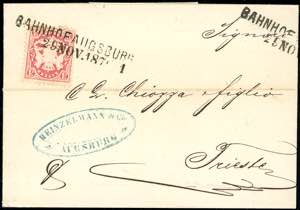 BAHNHOF AUGSBURG
24 NOV. 187
1
BAHNHOF
24 NOV
Signori
C. L. Chiozza e figlio
MEINZELMANN & Co.
AUGSBURG
Trieste